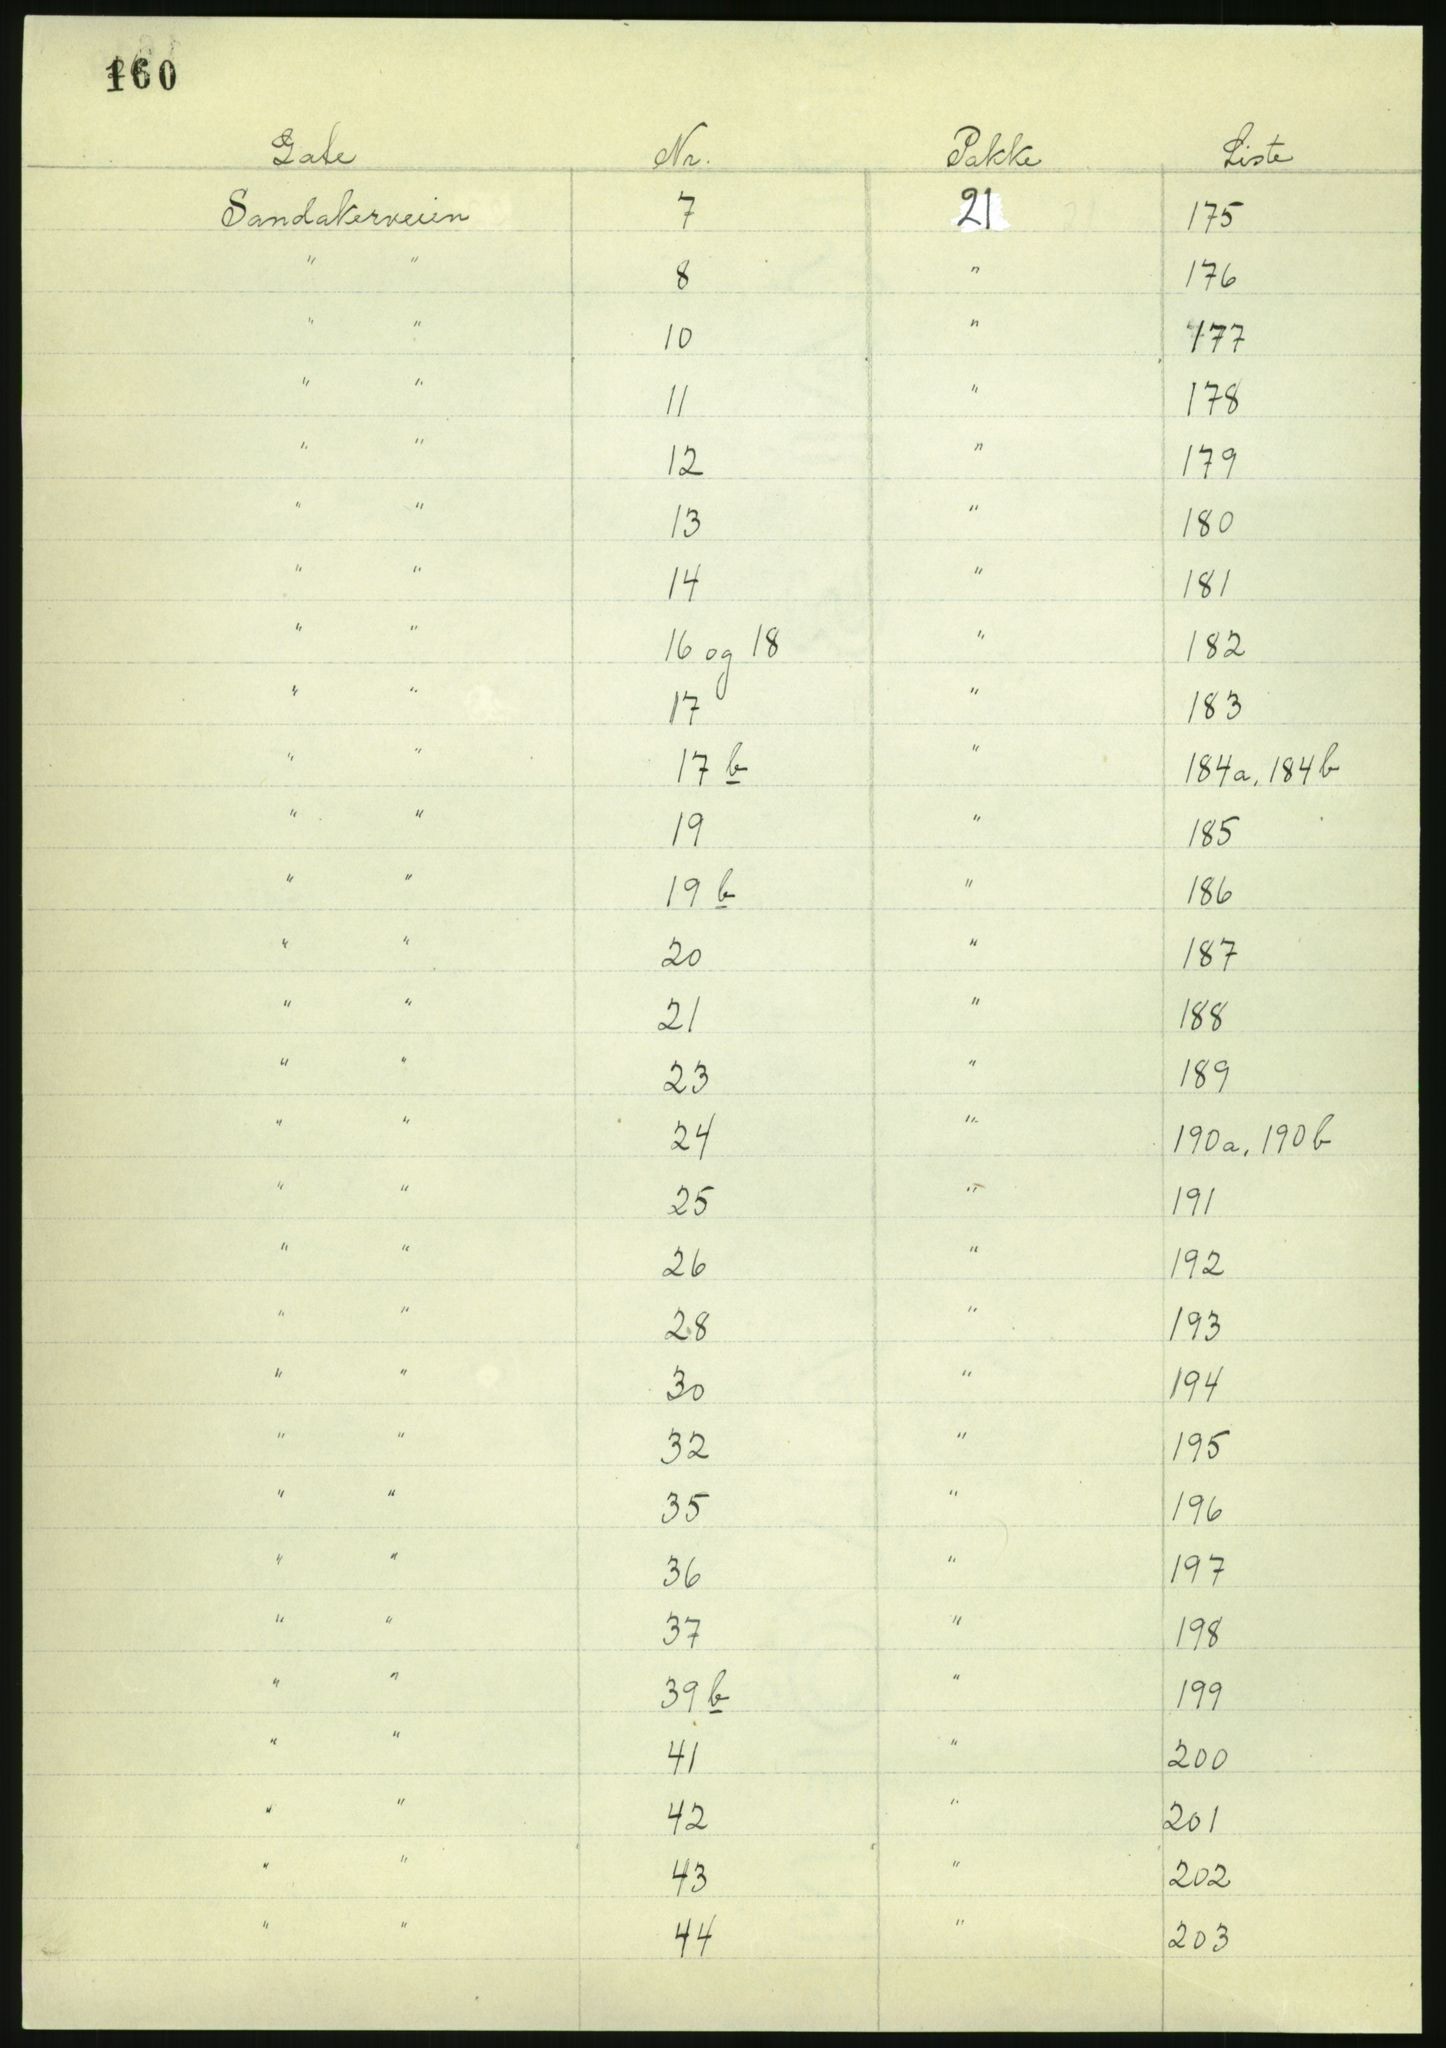 160
Gate Nr. Pakke Liste
Sandakerveien 7 21 175
" " 8 " 176
" " 10 " 177
" " 11 " 178
" " 12 " 179
" " 13 " 180
" " 14 " 181
" " 16 og 18 " 182
" " 17 " 183
" " 17 b " 184a, 184b
" " 19 " 185
" " 19 b " 186
" " 20 " 187
" " 21 " 188
" " 23 " 189
" " 24 " 190a, 190b
" " 25 " 191
" " 26 " 192
" " 28 " 193
" " 30 " 194
" " 32 " 195
" " 35 " 196
" " 36 " 197
" " 37 " 198
" " 39 b " 199
" " 41 " 200
" " 42 " 201
" " 43 " 202
" " 44 " 203